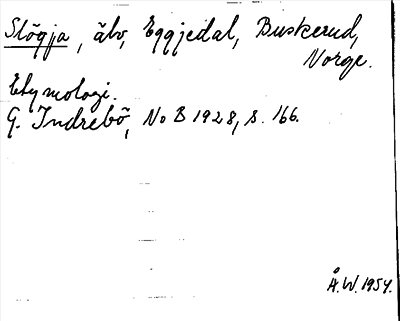 Slögja, älv, Eggjedal, Buskerud,
Norge.
Etymologi.
G. Indrebö, NoB 1928, s. 166.
Å.W. 1954.